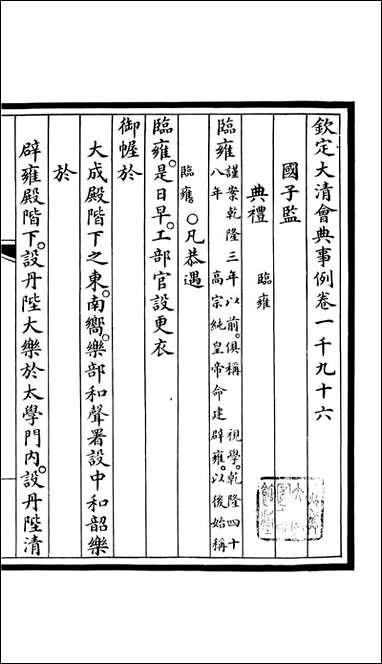 欽定大清會典事例卷一千九十六
國子監
典禮 臨雍
臨雍謹案乾隆三年以前。俱稱 視學。乾隆四十
八年 高宗純皇帝命建 辟雍。以後始稱
臨雍 ○凡恭遇
臨雍。是日早。工部官設更衣
御幄於
大成殿階下之東。南嚮。樂部和聲署設中和韶樂
於
辟雍殿階下。設丹陛大樂於太學門內。設丹陛清